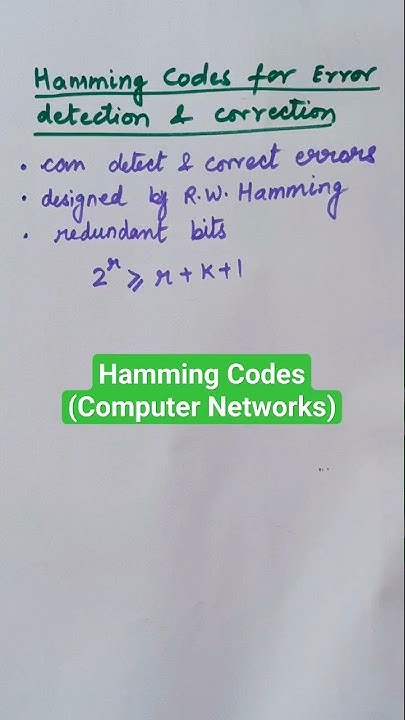 Hamming Codes for Error
detection & correction
• can detect & correct errors
• designed by R.W. Hamming
• redundant bits
2^r ⩾ r + k + 1
Hamming Codes
(Computer Networks)